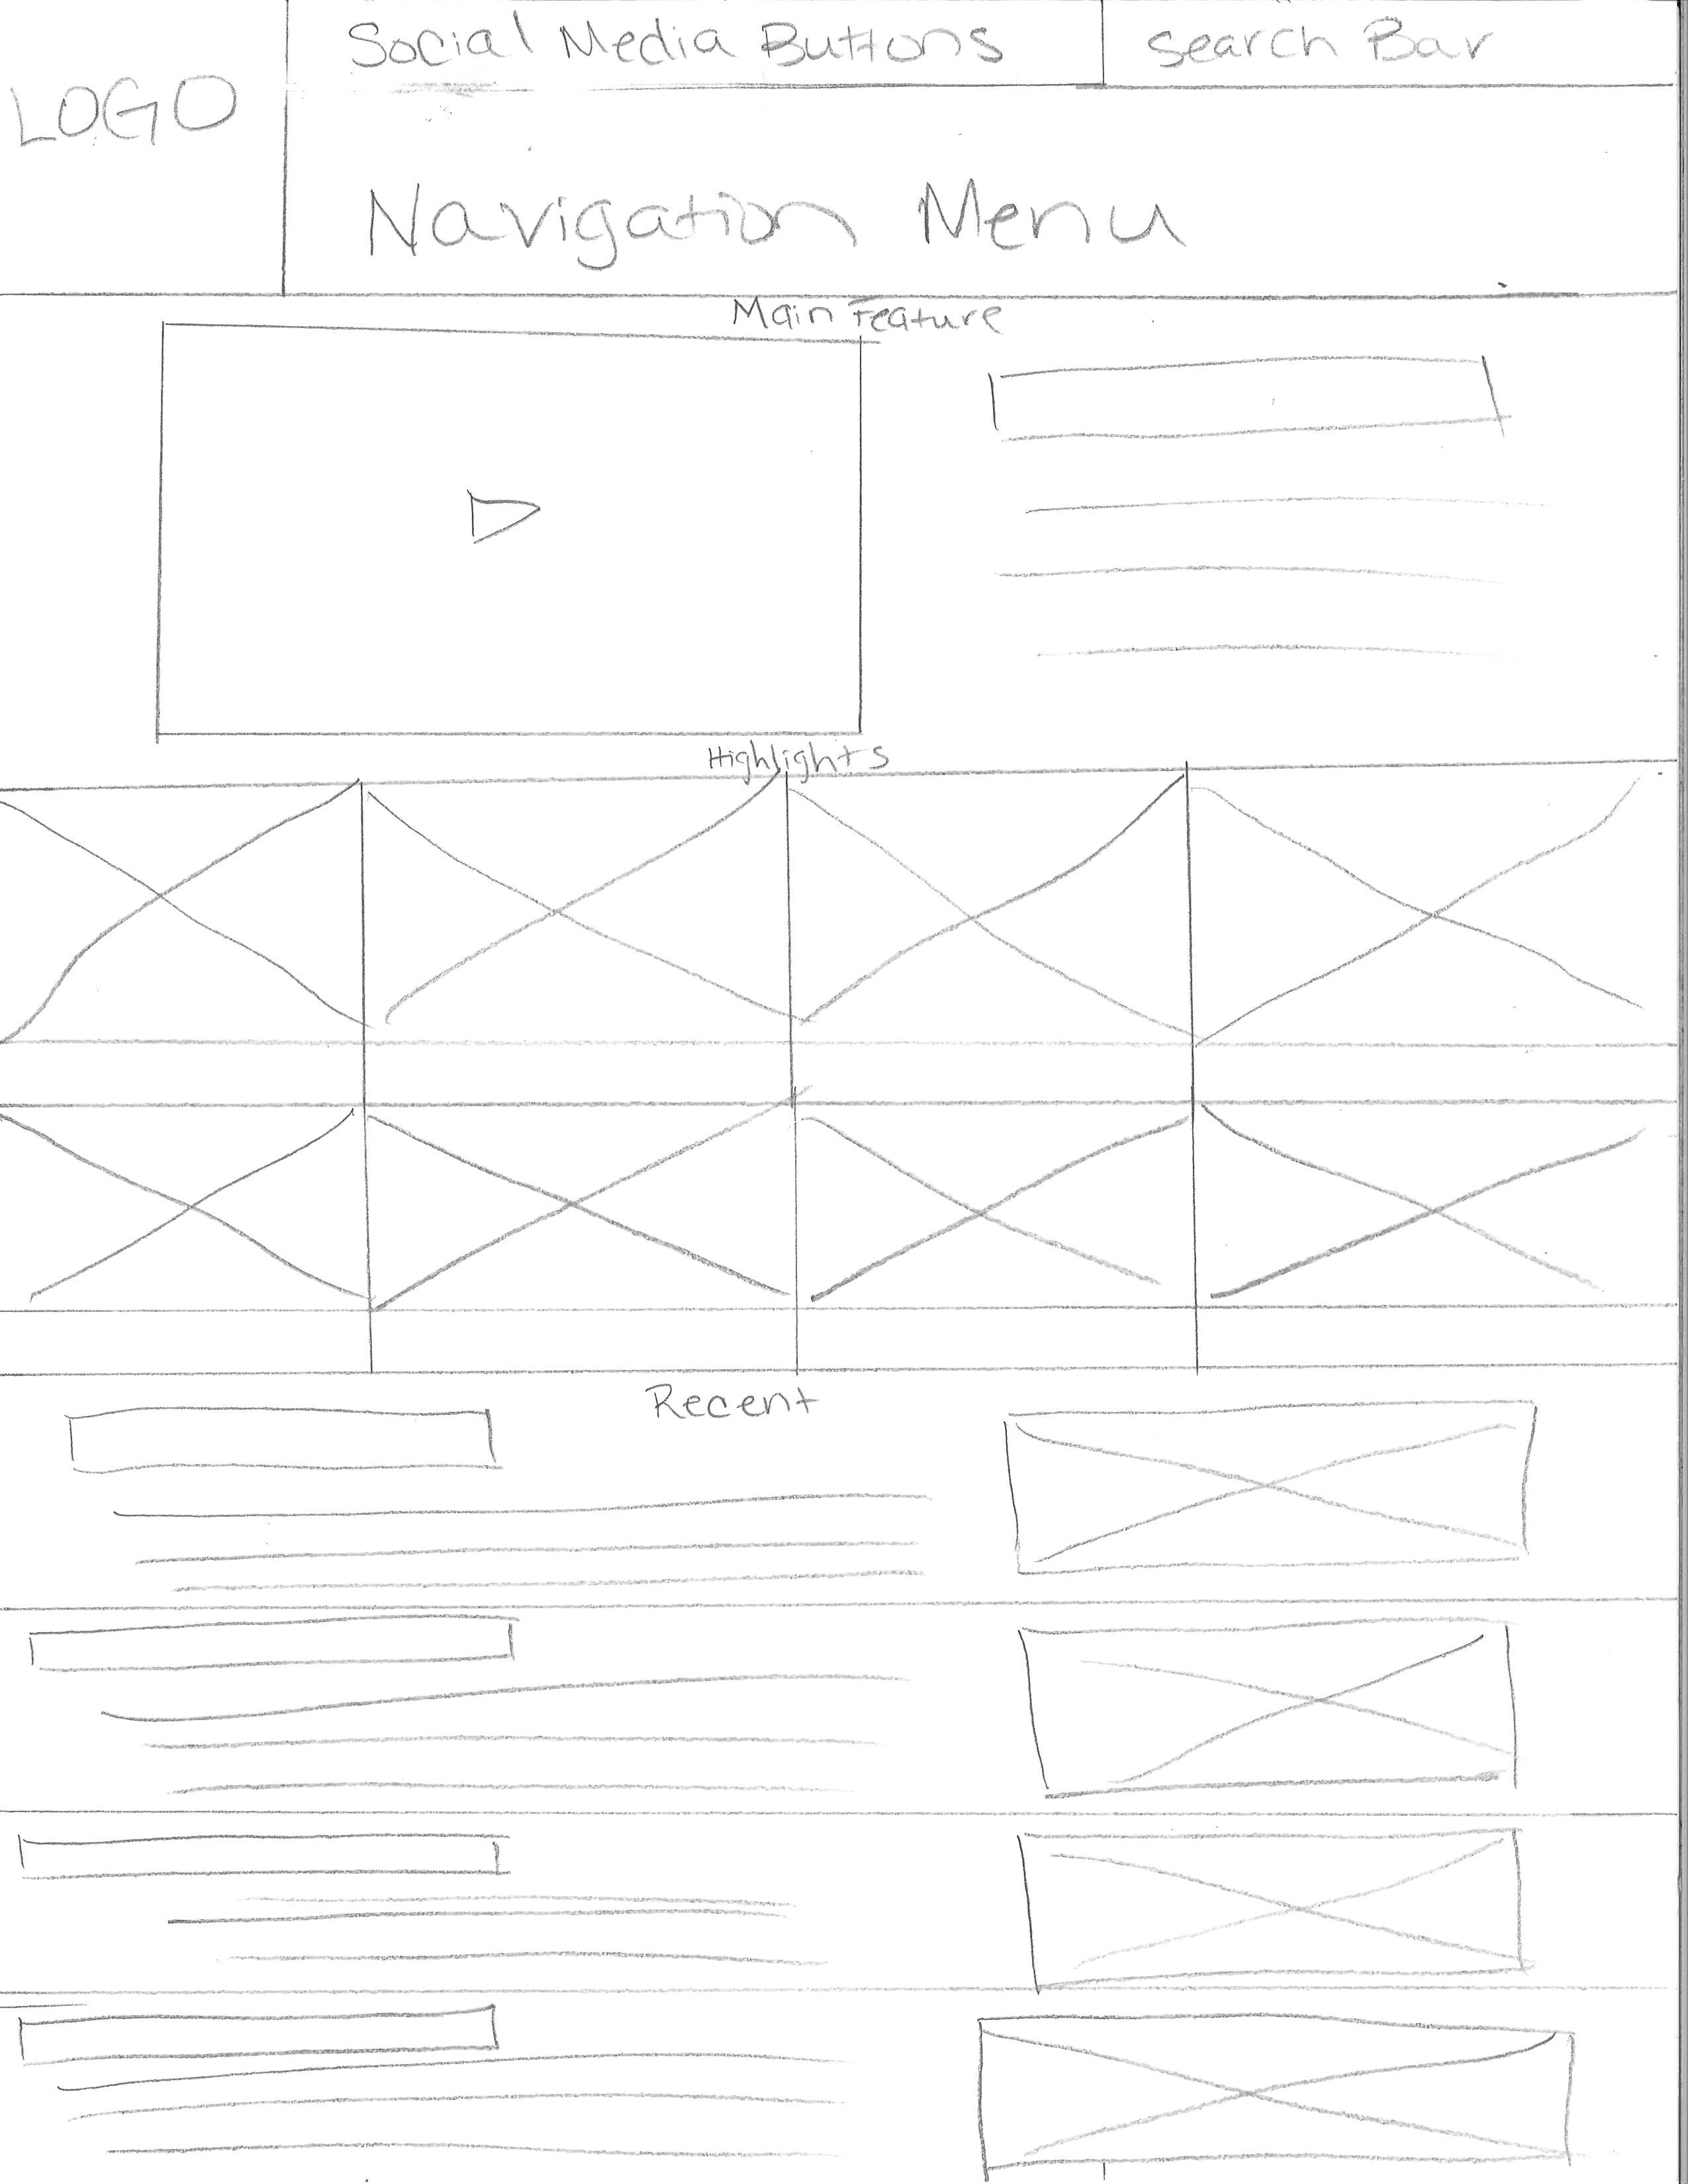 Social Media Buttons
search Bar
LOGO
Navigation Menu
Main Feature
Highlights
Recent